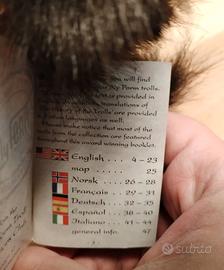 you will find
Ny Form trolls.
is provided in
translations of
of the Trolls are provided
languages as well.
Please make notice that most of the
trolls from the collection are featured
throughout this award winning booklet.
English .... 4 – 23
map ..... 25
Norsk .... 26 – 28
Français .. 29 – 31
Deutsch .. 32 – 35
Español .. 38 – 40
Italiano .. 41 – 44
general info. 47
subito